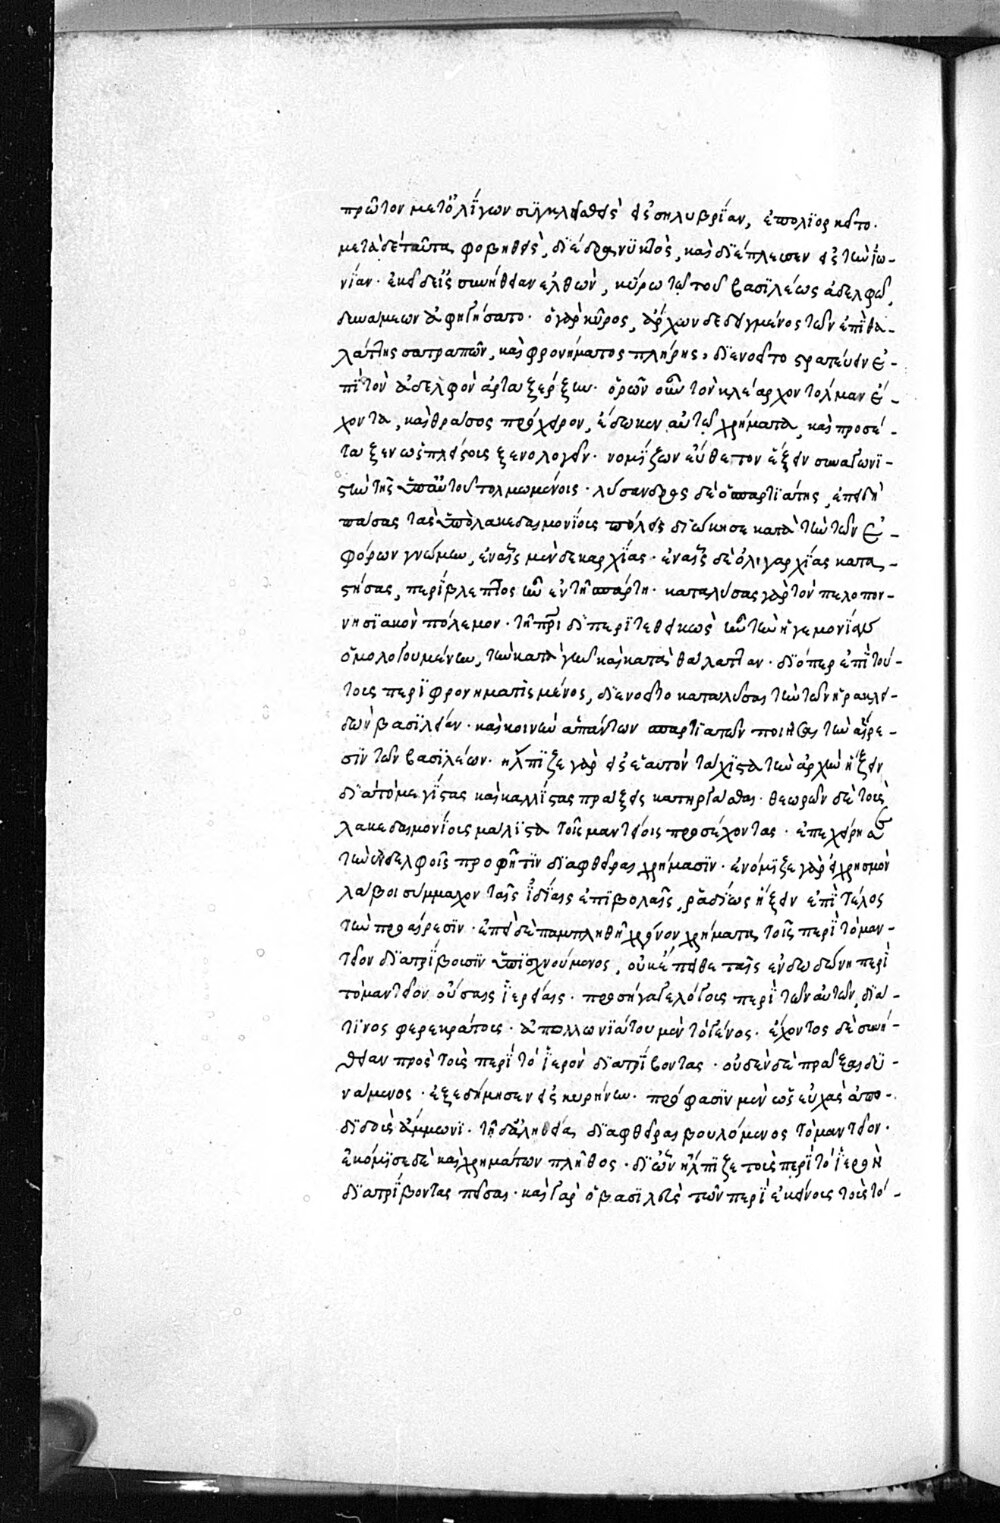 πρῶτον μετ' ὀλίγων συγκλεισθεὶς εἰς σηλυβρίαν, ἐπολιορκεῖτο·
μετὰ δὲ ταῦτα φοβηθεὶς, διέδρα νυκτὸς, καὶ διέπλευσεν εἰς τὴν ἰω-
νίαν· ἐκεῖ δ' εἰς συνήθειαν ἐλθὼν, κύρω τῶ τοῦ βασιλέως ἀδελφῶ,
δυνάμεων ἀφηγήσατο· ὁ γὰρ κῦρος, ἄρχων δεδειγμένος τῶν ἐπὶ θα-
λάττης σατραπῶν, καὶ φρονήματος πλήρης, διενοεῖτο στρατεύειν ἐ-
πὶ τὸν ἀδελφὸν ἀρταξέρξην· ὁρῶν οὖν τὸν κλέαρχον τόλμαν ἔ-
χοντα, καὶ θράσος πρόχειρον, ἔδωκεν αὐτῶ χρήματα, καὶ προσέ-
ταξεν ὡς πλείστοις ξενολογεῖν· νομίζων εὔθετον ἕξειν συναγωνι-
στὴν τῆς ὑπ' αὐτοῦ τολμωμένοις· λύσανδρος δὲ ὁ σπαρτιάτης, ἐπειδὴ
πάσας τὰς ὑπὸ λακεδαιμονίοις πόλεις διώκησε κατὰ τὴν τῶν ἐ-
φόρων γνώμην, ἐν αἷς μὲν δεκαρχίας· ἐν αἷς δὲ ὀλιγαρχίας κατα-
στήσας, περίβλεπτος ἦν ἐν τῆ σπάρτη· καταλύσας γὰρ τὸν πελοπον-
νησιακὸν πόλεμον· τῆ πατρίδι περιτεθεικὼς ἦν τὴν ἡγεμονίαν
ὁμολογουμένην, τὴν κατὰ γῆν καὶ κατὰ θάλατταν· διόπερ ἐπὶ τού-
τοις πεφρονηματισμένος, διενοεῖτο καταλῦσαι τὴν τῶν ἡρακλει-
δῶν βασιλείαν· καὶ κοινὴν ἁπάντων σπαρτιατῶν ποιῆσαι τὴν αἵρε-
σιν τῶν βασιλέων· ἤλπιζε γὰρ εἰς ἑαυτὸν τάχιστα τὴν ἀρχὴν ἥξειν
διὰ τὸ μεγίστας καὶ καλλίστας πράξεις κατηργᾶσθαι· θεωρῶν δὲ τοὺς
λακεδαιμονίους μάλιστα τοῖς μαντείοις προσέχοντας· ἐπεχείρησε
τὴν ἐν δελφοῖς προφῆτιν διαφθεῖραι χρήμασιν· ἐνόμιζε γὰρ εἰ χρησμὸν
λάβοι σύμμαχον ταῖς ἰδίαις ἐπιβολαῖς, ῥαδίως ἥξειν ἐπὶ τέλος
τὴν προαίρεσιν· ἐπεὶ δὲ παμπληθῆ χρόνον χρήματα τοῖς περὶ τὸ μαν-
τεῖον διατρίβουσιν ὑπισχνούμενος, οὐκ ἔπειθε ταῖς ἐν δωδώνη περὶ
τὸ μαντεῖον οὔσαις ἱερείαις· προσήγαγε λόγοις περὶ τῶν αὐτῶν, διά
τινος φερεκράτοις· ἀπολλωνιάτου μὲν τὸ γένος· ἔχοντος δὲ συνή-
θειαν πρὸς τοὺς περὶ τὸ ἱερὸν διατρίβοντας· οὐδὲν δὲ πρᾶξαι δυ-
νάμενος· ἐξεδήμησεν εἰς κυρήνην· πρόφασιν μὲν ὡς εὐχὰς ἀπο-
διδοὺς ἄμμωνι· τῆ δ' ἀληθεία διαφθεῖραι βουλόμενος τὸ μαντεῖον·
ἐκόμισε δὲ καὶ χρημάτων πλῆθος· δι' ὧν ἤλπιζε τοὺς περὶ τὸ ἱερὸν
διατρίβοντας πεῖσαι· καὶ γὰρ ὁ βασιλεὺς τῶν περὶ ἐκείνοις τοὺς τό-